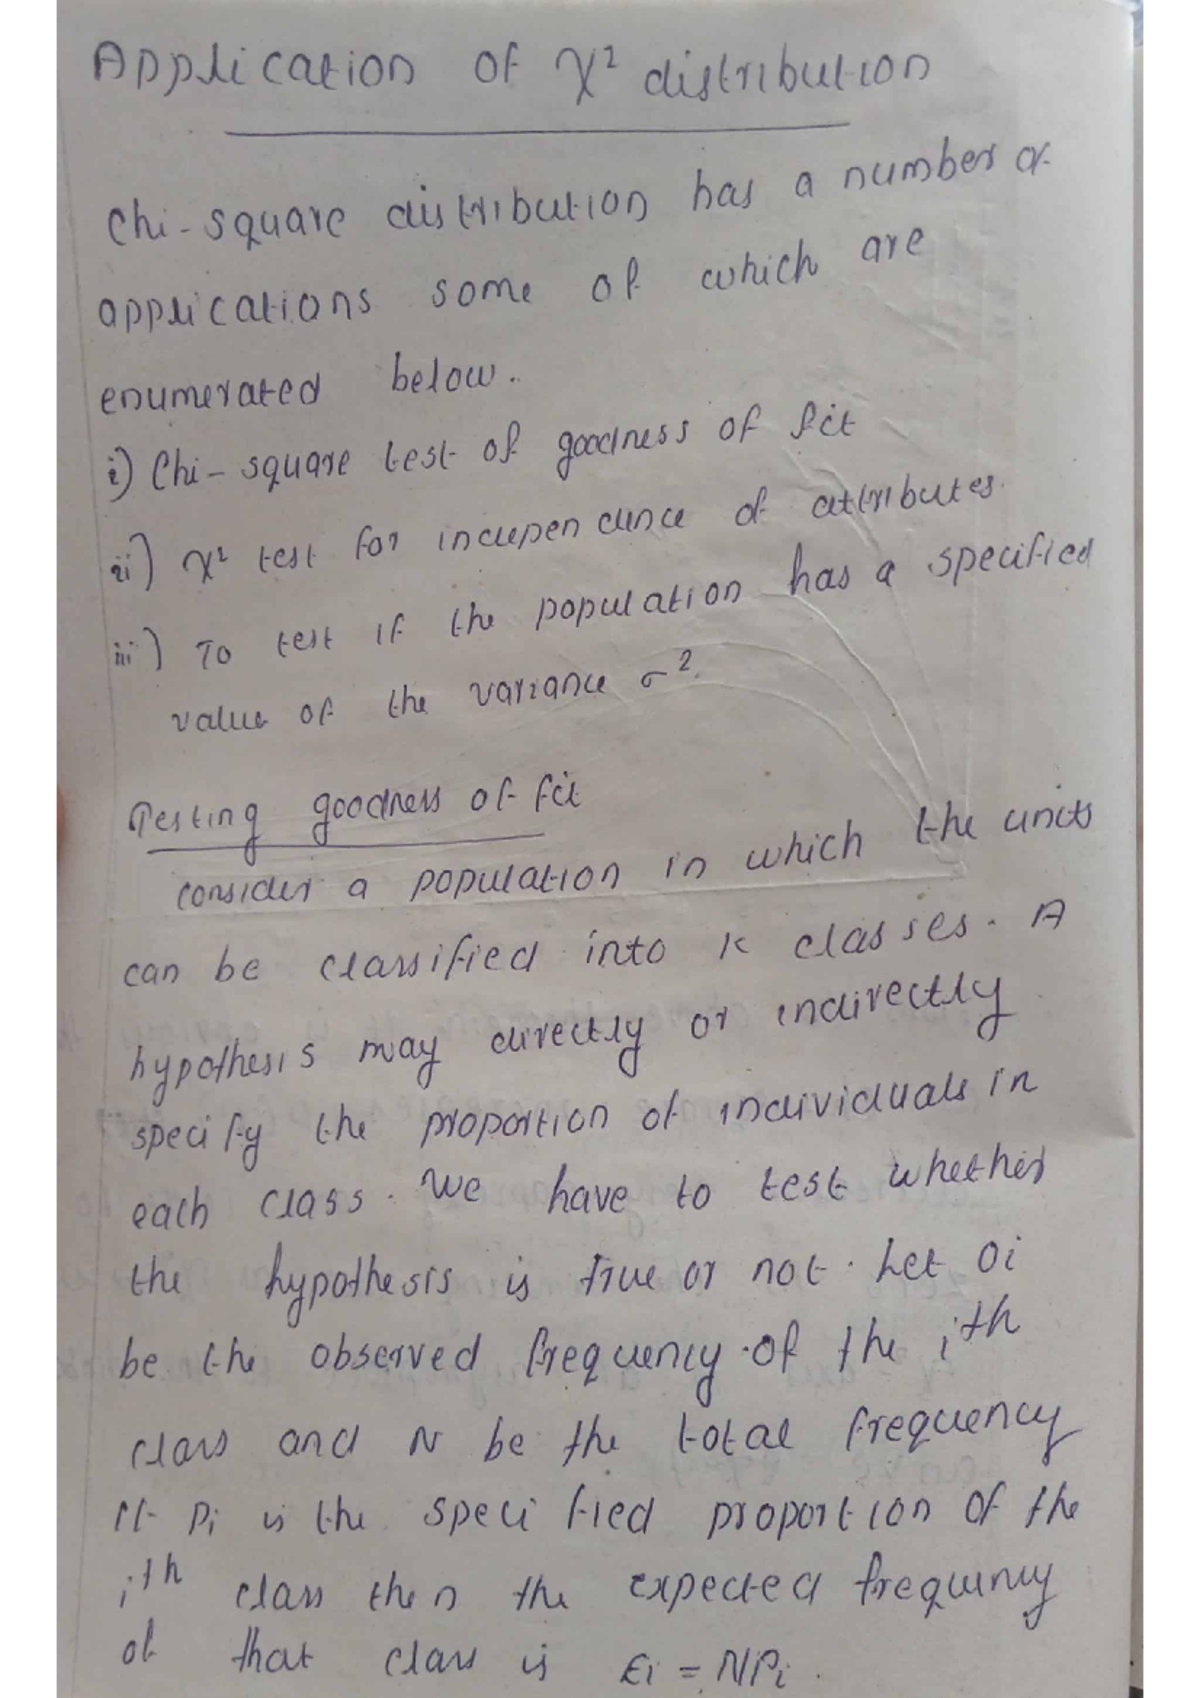 Application of χ² distribution
Chi-square distribution has a number of
applications some of which are
enumerated below.
i) Chi-square test of goodness of fit
ii) χ² test for independence of attributes.
iii) To test if the population has a specified
value of the variance σ².
Testing goodness of fit
consider a population in which the units
can be classified into K classes. A
hypothesis may directly or indirectly
specify the proportion of individuals in
each class. We have to test whether
the hypothesis is true or not. Let Oi
be the observed frequency of the ith
class and N be the total frequency
If Pi is the specified proportion of the
ith class then the expected frequency
of that class is Ei = NPi.